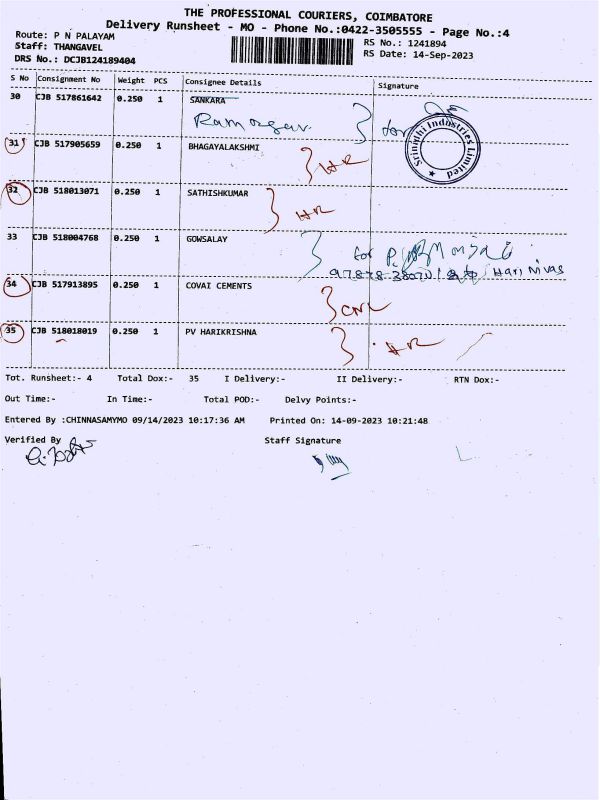 THE PROFESSIONAL COURIERS, COIMBATORE
Delivery Runsheet - MO - Phone No.:0422-3505555 - Page No.:4
Route: P N PALAYAM
Staff: THANGAVEL
DRS No.: DCJB124189404
RS No.: 1241894
RS Date: 14-Sep-2023
S No Consignment No Weight PCS Consignee Details Signature
30 CJB 517861642 0.250 1 SANKARA
for
Srinidhi Industries Limited
31 CJB 517905659 0.250 1 BHAGAYALAKSHMI
HR
32 CJB 518013071 0.250 1 SATHISHKUMAR
HR
33 CJB 518004768 0.250 1 GOWSALAY
for
Hari Nivas
34 CJB 517913895 0.250 1 COVAI CEMENTS
CNL
35 CJB 518018019 0.250 1 PV HARIKRISHNA
HR
Tot. Runsheet:- 4 Total Dox:- 35 I Delivery:- II Delivery:- RTN Dox:-
Out Time:- In Time:- Total POD:- Delvy Points:-
Entered By :CHINNASAMYMO 09/14/2023 10:17:36 AM Printed On: 14-09-2023 10:21:48
Verified By Staff Signature